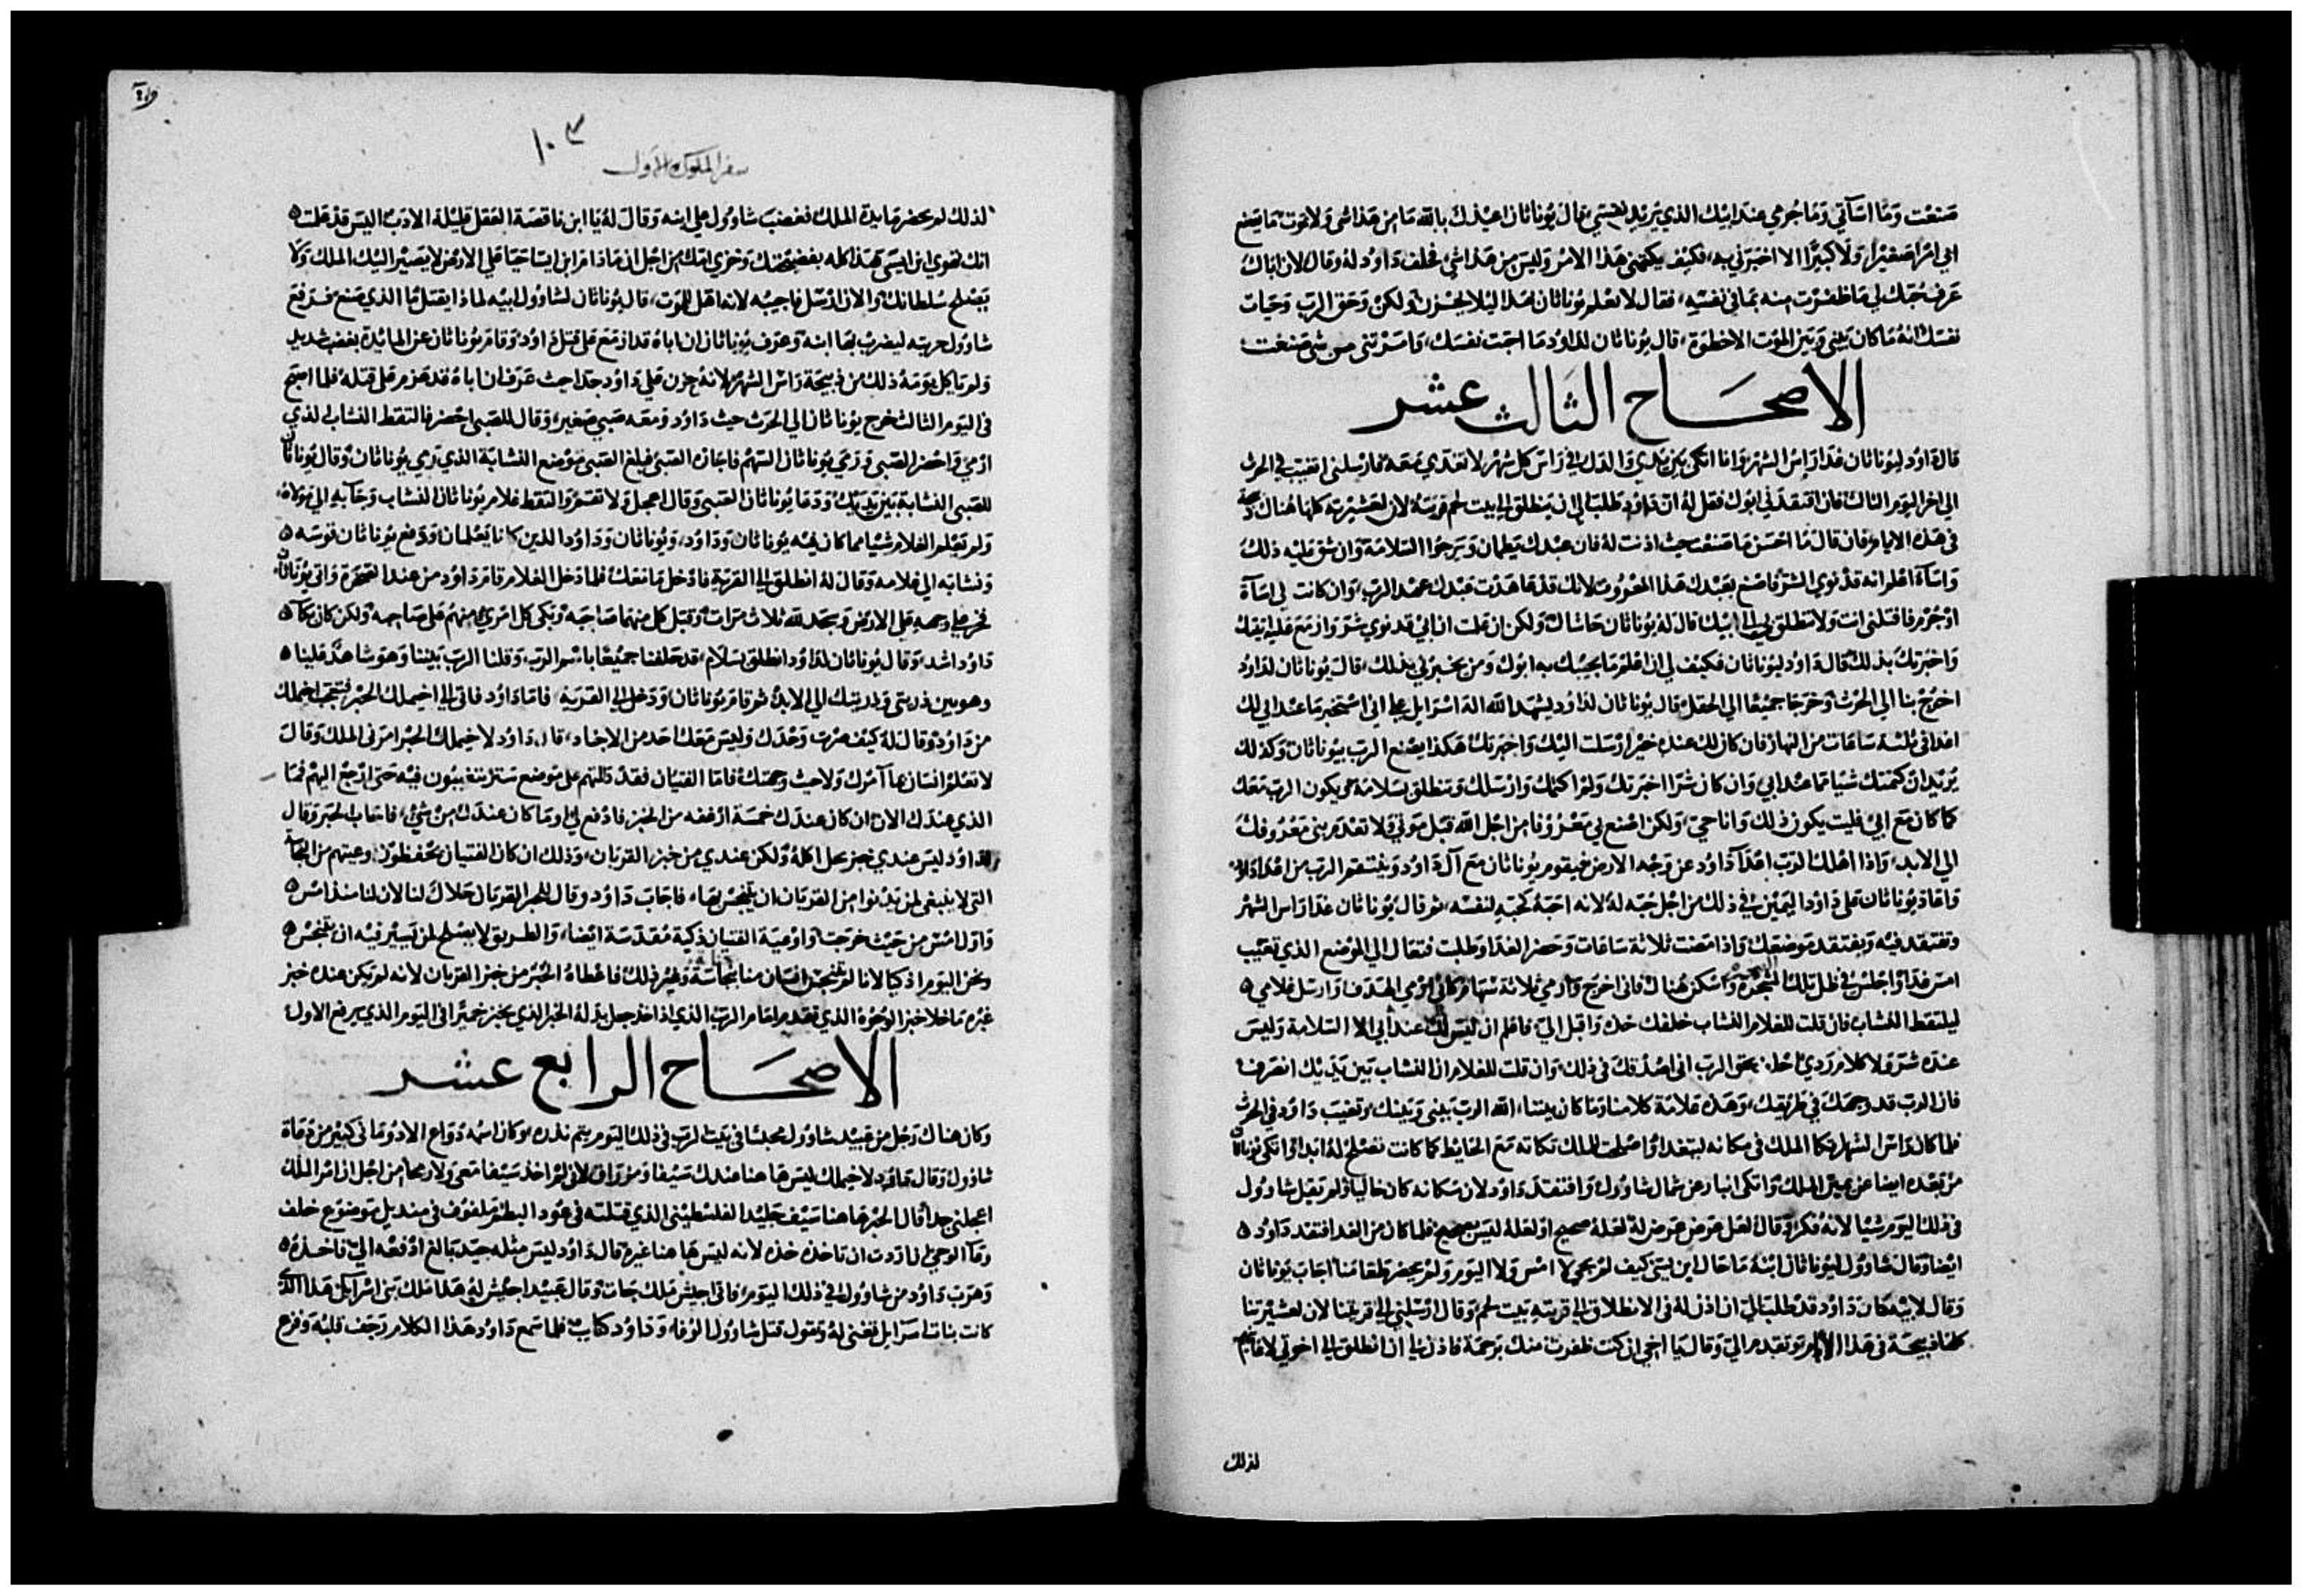 صنعت وما اسآتي وما جرمي عند ابيك الذي يريد نفسي قال يوناثان اعيذك بالله ما من هذا شى ولا تموت ما يصنع
ابي امرا صغيرا ولا كبيرا الا اخبرني به فكيف يكتمنى هذا الامر وليس من هذا شي فحلف داود له وقال لان اباك
عرف حبك لي ما ظفرت منه بما في نفسه فقال لا نعلم يوناثان هذا ليلا يحزن ولكن وحق الرب وحيات
نفسك انه ما كان بيني وبين الموت الا خطوة قال يوناثان لداود ما احبت نفسك وامرتنى من شى صنعت
الاصحاح الثالث عشر
قال داود ليوناثان غدا راس الشهر وانا اتكى بين يدي والدك في راس كل شهر لاتغدي معه فارسلنى اتغيب في الحرث
الى اخر اليوم الثالث فان افتقدني ابوك فقل له ان داود طلب الي ان ينطلق الي بيت لحم قريته لان لعشيرته كلها هناك
فى هذه الايام فان قال ما احسن ما صنعت حيث اذنت له فان عبدك يطمان ويرجوا السلامة وان شق عليه ذلك
واسآه اعلم انه قد نوي الشر فاصنع بعبدك هذا المعروف لانك قد عاهدت عبدك عهد الرب وان كانت لي اسآة
او جرم فاقتلنى انت ولا تنطلق بي الي ابيك قال له يوناثان حاشاك ولكن ان علمت ان ابي قد نوي شر وازمع عليه
واخبرتك بذلك قال داود ليوناثان فكيف لي ان اعلم ما يجيبك به ابوك ومن يخبرني بذلك قال يوناثان لداود
اخرج بنا الي الحرث وخرجا جميعا الي الحقل قال يوناثان لداود يشهد الله اله اسرايل علي اني استخبر ما عند ابي لك
غدا فى ثلثة ساعات من النهار فان كان لك عنده خير ارسلت اليك واخبرتك هكذا يصنع الرب بيوناثان وكذلك
يزيد ان كتمتك شيا مما عند ابي وان كان شرا اخبرتك ولم اكتمك وارسلك وتنطلق بسلامة يكون الرب معك
كما كان مع ابي فليت يكون ذلك وانا حي ولكن اصنع بي معروفا من اجل الله قبل موتي ولا تعدم بنى معروفك
الي الابد واذا اهلك الرب اعدآ داود عن وجه الارض فيقوم يوناثان مع آل داود وينتقم الرب من اعدا داود
واعاد يوناثان على داود اليمين في ذلك من اجل حبه له لانه احبه كحبه لنفسه ثم قال يوناثان غدا راس الشهر
وتفتقد فيه ويفتقد موضعك واذا مضت ثلاثة ساعات وحضر الغدا وطلبت فتعال الي الموضع الذي تغيب
امس غدا واجلس في ظل تلك واسكن هناك فانى اخرج وارمي ثلاثة سهام كاني ارمي الهدف وارسل غلامي
ليلتقط النشاب فان قلت للغلام النشاب خلفك خذه واقبل الي فاعلم ان ليس لك عند ابي الا السلامة وليس
عنده شر ولا كلام ردي بحق الرب انى اصدقك فى ذلك وان قلت للغلام ان النشاب بين يديك انصرف
فان الرب قد وجهك في طريقك وهذه علامة كلامنا وما كان بيننا الله الرب بيني وبينك وتغيب داود في الحرث
فلما كان راس الشهر اتكا الملك فى مكانه ليتغدا واصلحت للملك تكاته مع الحايط كما كانت تصلح له ابدا واتكى يوناثان
من بعده ايضا عن يمين الملك واتكى ابنار عن شمال شاوول وافتقد داود لان مكانه كان خاليا ولم يقل شاوول
فى ذلك اليوم شيا لانه فكر وقال لعل عرض عرض له لعله صحيح او لعله ليس صحيح فلما كان من الغد افتقد داود
ايضا وقال شاوول ليوناثان ابنه ما حال ابن ايسى كيف لم يجي لا امس ولا اليوم ولم يحضر طعامنا اجاب يوناثان
وقال لابيه كان داود قد طلب الي ان اذن له فى الانطلاق الي قريته بيت لحم وقال ارسلني الي قريتنا لان لعشيرتنا
كلها ذبيحة فى هذا وتقدم الي وقال يا اخي ان كنت ظفرت منك برحمة فاذن لي ان انطلق الي اخوتي
لذلك
١٠٣
سفر الملوك الاول
لذلك لم يحضر مايدة الملك فغضب شاوول علي ابنه وقال له يا ابن ناقصة العقل قليلة الادب اليس قد علمت
انك تهوي ابن ايسى هذا كله بفضيحتك وخزي امك من اجل ان مادام ابن ايسا حيا علي الارض لا يصير اليك الملك ولا
يصلح سلطانك والان ارسل فاجيبه لانه اهل للموت قال يوناثان لشاوول ابيه لماذا يقتل ما الذي صنع فرفع
شاوول حربته ليضرب بها ابنه وعرف يوناثان ان اباه قد ازمع على قتل داود وقام يوناثان عن المايدة بغضب شديد
ولم ياكل يومه ذلك من ذبيحة راس الشهر لانه حزن علي داود جدا حيث عرف ان اباه قد عزم على قتله فلما اصبح
فى اليوم الثالث خرج يوناثان الي الحرث حيث داود ومعه صبي صغير وقال للصبى احضر فالتقط النشاب الذي
ارمي واحضر الصبى ورمي يوناثان السهم فاجازه الصبى فبلغ الصبى موضع النشابة الذي رمي يوناثان وقال يوناثان
للصبى النشابة بين يديك ودعا يوناثان الصبى وقال اعجل ولا تقف والتقط غلام يوناثان النشاب وجآ به الي مولاه
ولم يعلم الغلام شيا مما كان فيه يوناثان وداود ويوناثان وداود الذين كانا يعلمان ودفع يوناثان قوسه
ونشابه الي غلامه وقال له انطلق الي القرية فادخل فلما دخل الغلام قام داود من عند الصخرة واتى يوناثان
فخر علي وجهه على الارض وسجد لله ثلاث مرات وقبل كل منهما صاحبه وبكى كل امري منهم على صاحبه ولكن كان بكآ
داود اشد وقال يوناثان لداود انطلق بسلام قد حلفنا جميعا باسم الرب وقلنا الرب بيننا وهو شاهد علينا
وهو بين ذريتى وذريتك الي الابد ثم قام يوناثان ودخل الي القرية فاما داود فاتى الي اخيملك الحبر فتعجب اخيملك
من داود وقال له كيف صرت وحدك وليس معك احد من الاجناد قال داود لاخيملك الحبر امرنى الملك وقال
لا تعلم انسان بما آمرك ولا حيث وجهتك فاما الفتيان فقد دللتهم على موضع ستر يتغيبون فيه حتى ارجع اليهم فما
الذي عندك الان ان كان عندك خمسة ارغفه من الخبز فادفع لي او ما كان عندك من شي فاجاب الحبر وقال
لداود ليس عندي خبز يحل اكله ولكن عندي من خبز القربان وذلك ان كان الفتيان يحفظون وعيتهم من النجاسة
التى لا ينبغى لمن يدنوا من القربان ان يتنجس بها فاجاب داود وقال للحبر القربان حلال لنا لان لنا منذ امس
واول امس من حيث خرجت واوعية الفتيان ذكية مقدسة ايضا والطريق لا يصلح لمن يسير فيه ان يتنجس
ونحن اليوم اذكيا لانا لم يتنجس انسان منا بنجاسة وغير ذلك فاعطاه الحبر من خبز القربان لانه لم يكن عنده خبز
غيره ما خلا خبز الوجوه الذي تقدم امام الرب الذي اذا اخذ جعل بدله الخبز الذي يخبز خميرا فى اليوم الذي يرفع الاول
الاصحاح الرابع عشر
وكان هناك رجل من عبيد شاوول محبسا فى بيت الرب فى ذلك اليوم يتم نذره وكان اسمه دواع الادومانى كبير من رعاة
شاوول وقال داود لاخيملك ليس هاهنا عندك سيفا لانى لم اخذ سيفا معى ولا رمحا من اجل ان امر الملك
اعجلني جدا قال الحبر هاهنا سيف جليد الفلسطينى الذي قتلته فى غور البطم ملفوف فى منديل موضوع خلف
وعآ الوحي ان اردت ان تاخذه خذه لانه ليس هاهنا غيره قال داود ليس مثله جيد بالغ ادفعه الي فاخذه
وهرب داود من شاوول في ذلك اليوم فاتى اجيش ملك جات وقال عبيد اجيش له هذا ملك بنى اسرايل هذا الذي
كانت بنات اسرايل تغنى له وتقول قتل شاوول الوفا وداود فلما سمع داود هذا الكلام رجف قلبه وفزع